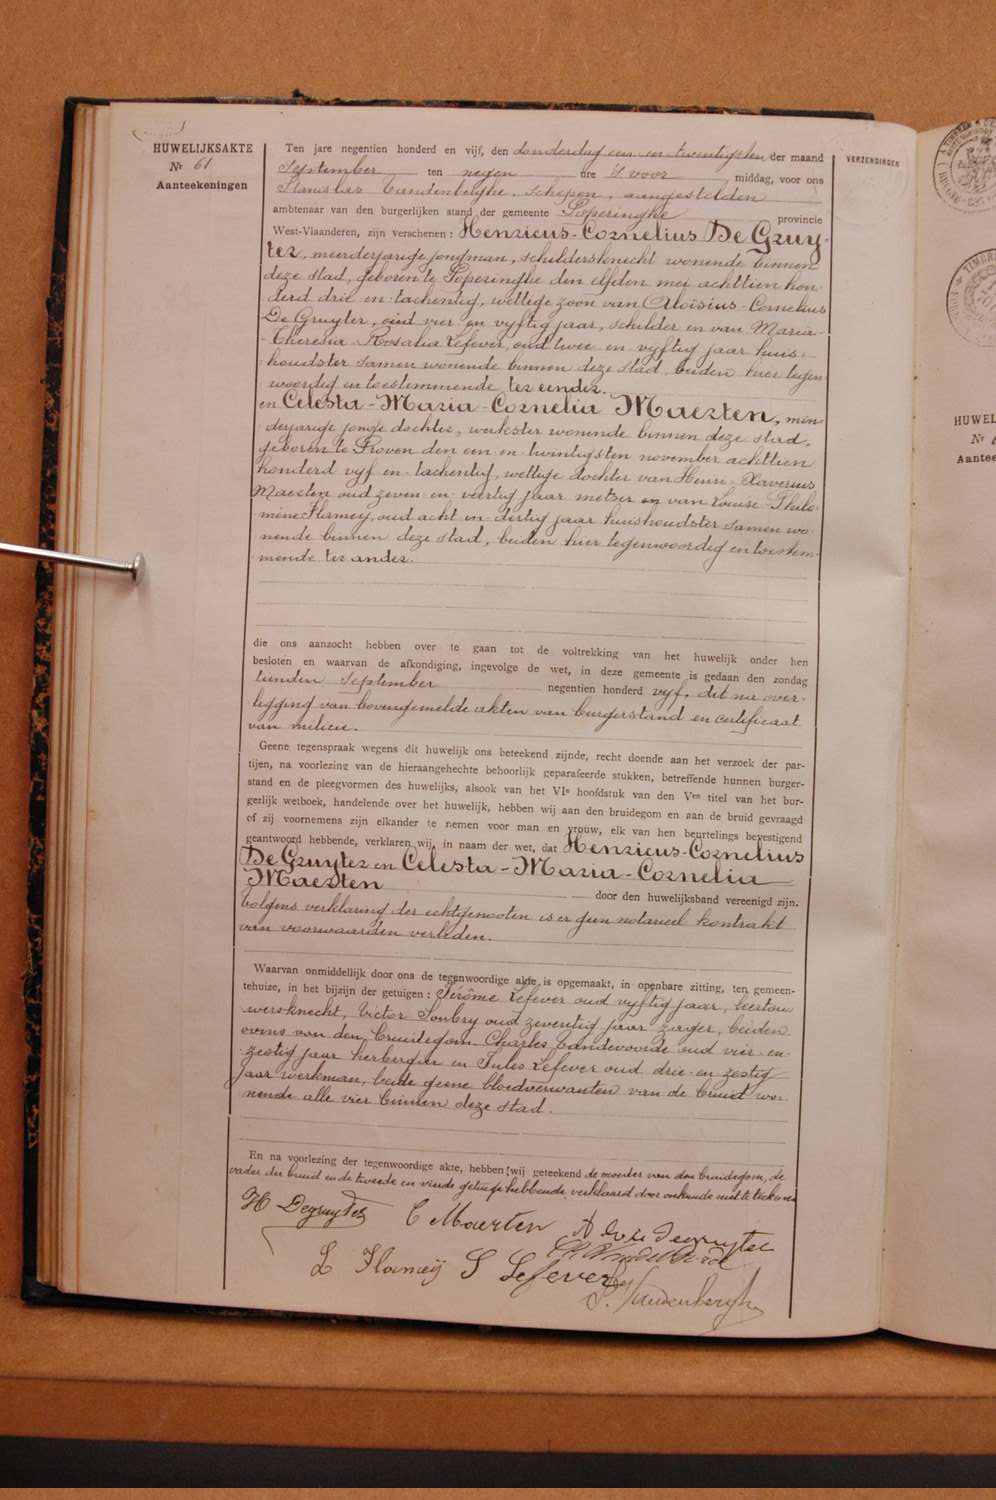 HUWELIJKSAKTE
Nr 61
Aanteekeningen
VERZENDINGEN
Ten jare negentien honderd en vijf, den donderdag een en twentigsten der maand
September ten negen ure 's voor middag, voor ons
Stanislas Vandenberghe, schepen, aangestelden
ambtenaar van den burgerlijken stand der gemeente Poperinghe provincie
West-Vlaanderen, zijn verschenen : Henricus-Cornelius De Gruy-
ter, meerderjarige jongman, schildersknecht wonende binnen
deze stad, geboren te Poperinghe den elfden mei achttien hon
derd drie en tachentig, wettege zoon van Aloïsius-Cornelius
De Gruyter, oud vier en vyftig jaar, schilder en van Maria-
Theresia Rosalia Lefever, oud twee en vyftig jaar huis-
houdster samen wonende binnen deze stad, beiden hier tegen
woordig en toestemmende ter eender.
en Celesta-Maria-Cornelia Maerten, min
derjarige jonge dochter, werkster wonende binnen deze stad,
geboren te Proven den een en twintigsten november achttien
honderd vyf en tachentig, wettige dochter van Henri-Xaverius
Maerten oud zeven en veertig jaar metser en van Louise Philo-
mène Flameÿ, oud acht en dertig jaar huishoudster samen wo-
nende binnen deze stad, beiden hier tegenwoordig en toestem-
mende ter ander.
die ons aanzocht hebben over te gaan tot de voltrekking van het huwelijk onder hen
besloten en waarvan de afkondiging, ingevolge de wet, in deze gemeente is gedaan den zondag
tienden September negentien honderd vyf, dit na over-
legging van bovengemelde akten van burgerstand en certificaat
van milicie.
Geene tegenspraak wegens dit huwelijk ons beteekend zijnde, recht doende aan het verzoek der par-
tijen, na voorlezing van de hieraangehechte behoorlijk geparafeerde stukken, betreffende hunnen burger-
stand en de pleegvormen des huwelijks, alsook van het VIe hoofdstuk van den Ven titel van het bur-
gerlijk wetboek, handelende over het huwelijk, hebben wij aan den bruidegom en aan de bruid gevraagd
of zij voornemens zijn elkander te nemen voor man en vrouw, elk van hen beurtelings bevestigend
geantwoord hebbende, verklaren wij, in naam der wet, dat Henricus-Cornelius
De Gruyter en Celesta-Maria-Cornelia
Maerten door den huwelijksband vereenigd zijn.
Volgens verklaring der echtgenooten is er geen notarieel kontrakt
van voorwaarden verleden.
Waarvan onmiddellijk door ons de tegenwoordige akte is opgemaakt, in openbare zitting, ten gemeen-
tehuize, in het bijzijn der getuigen : Jérôme Lefever oud vyftig jaar, leertou
wersknecht, Victor Soubry oud zeventig jaar zager, beiden
ooms van den bruidegom Charles Vandevoorde oud vier en
zestig jaar herbergier en Jules Lefever oud drie en zestig
jaar werkman, beide geene bloedverwanten van de bruid wo-
nende alle vier binnen deze stad.
En na voorlezing der tegenwoordige akte, hebben wij geteekend de moeder van den bruidegom, de
vader der bruid en de tweede en vierde getuige hebbende verklaard door onkunde niet te teekenen
H Degruyter C Maerten
L Flameÿ J Lefever
S. Vandenberghe
HUWEL
Nr
Aanteek